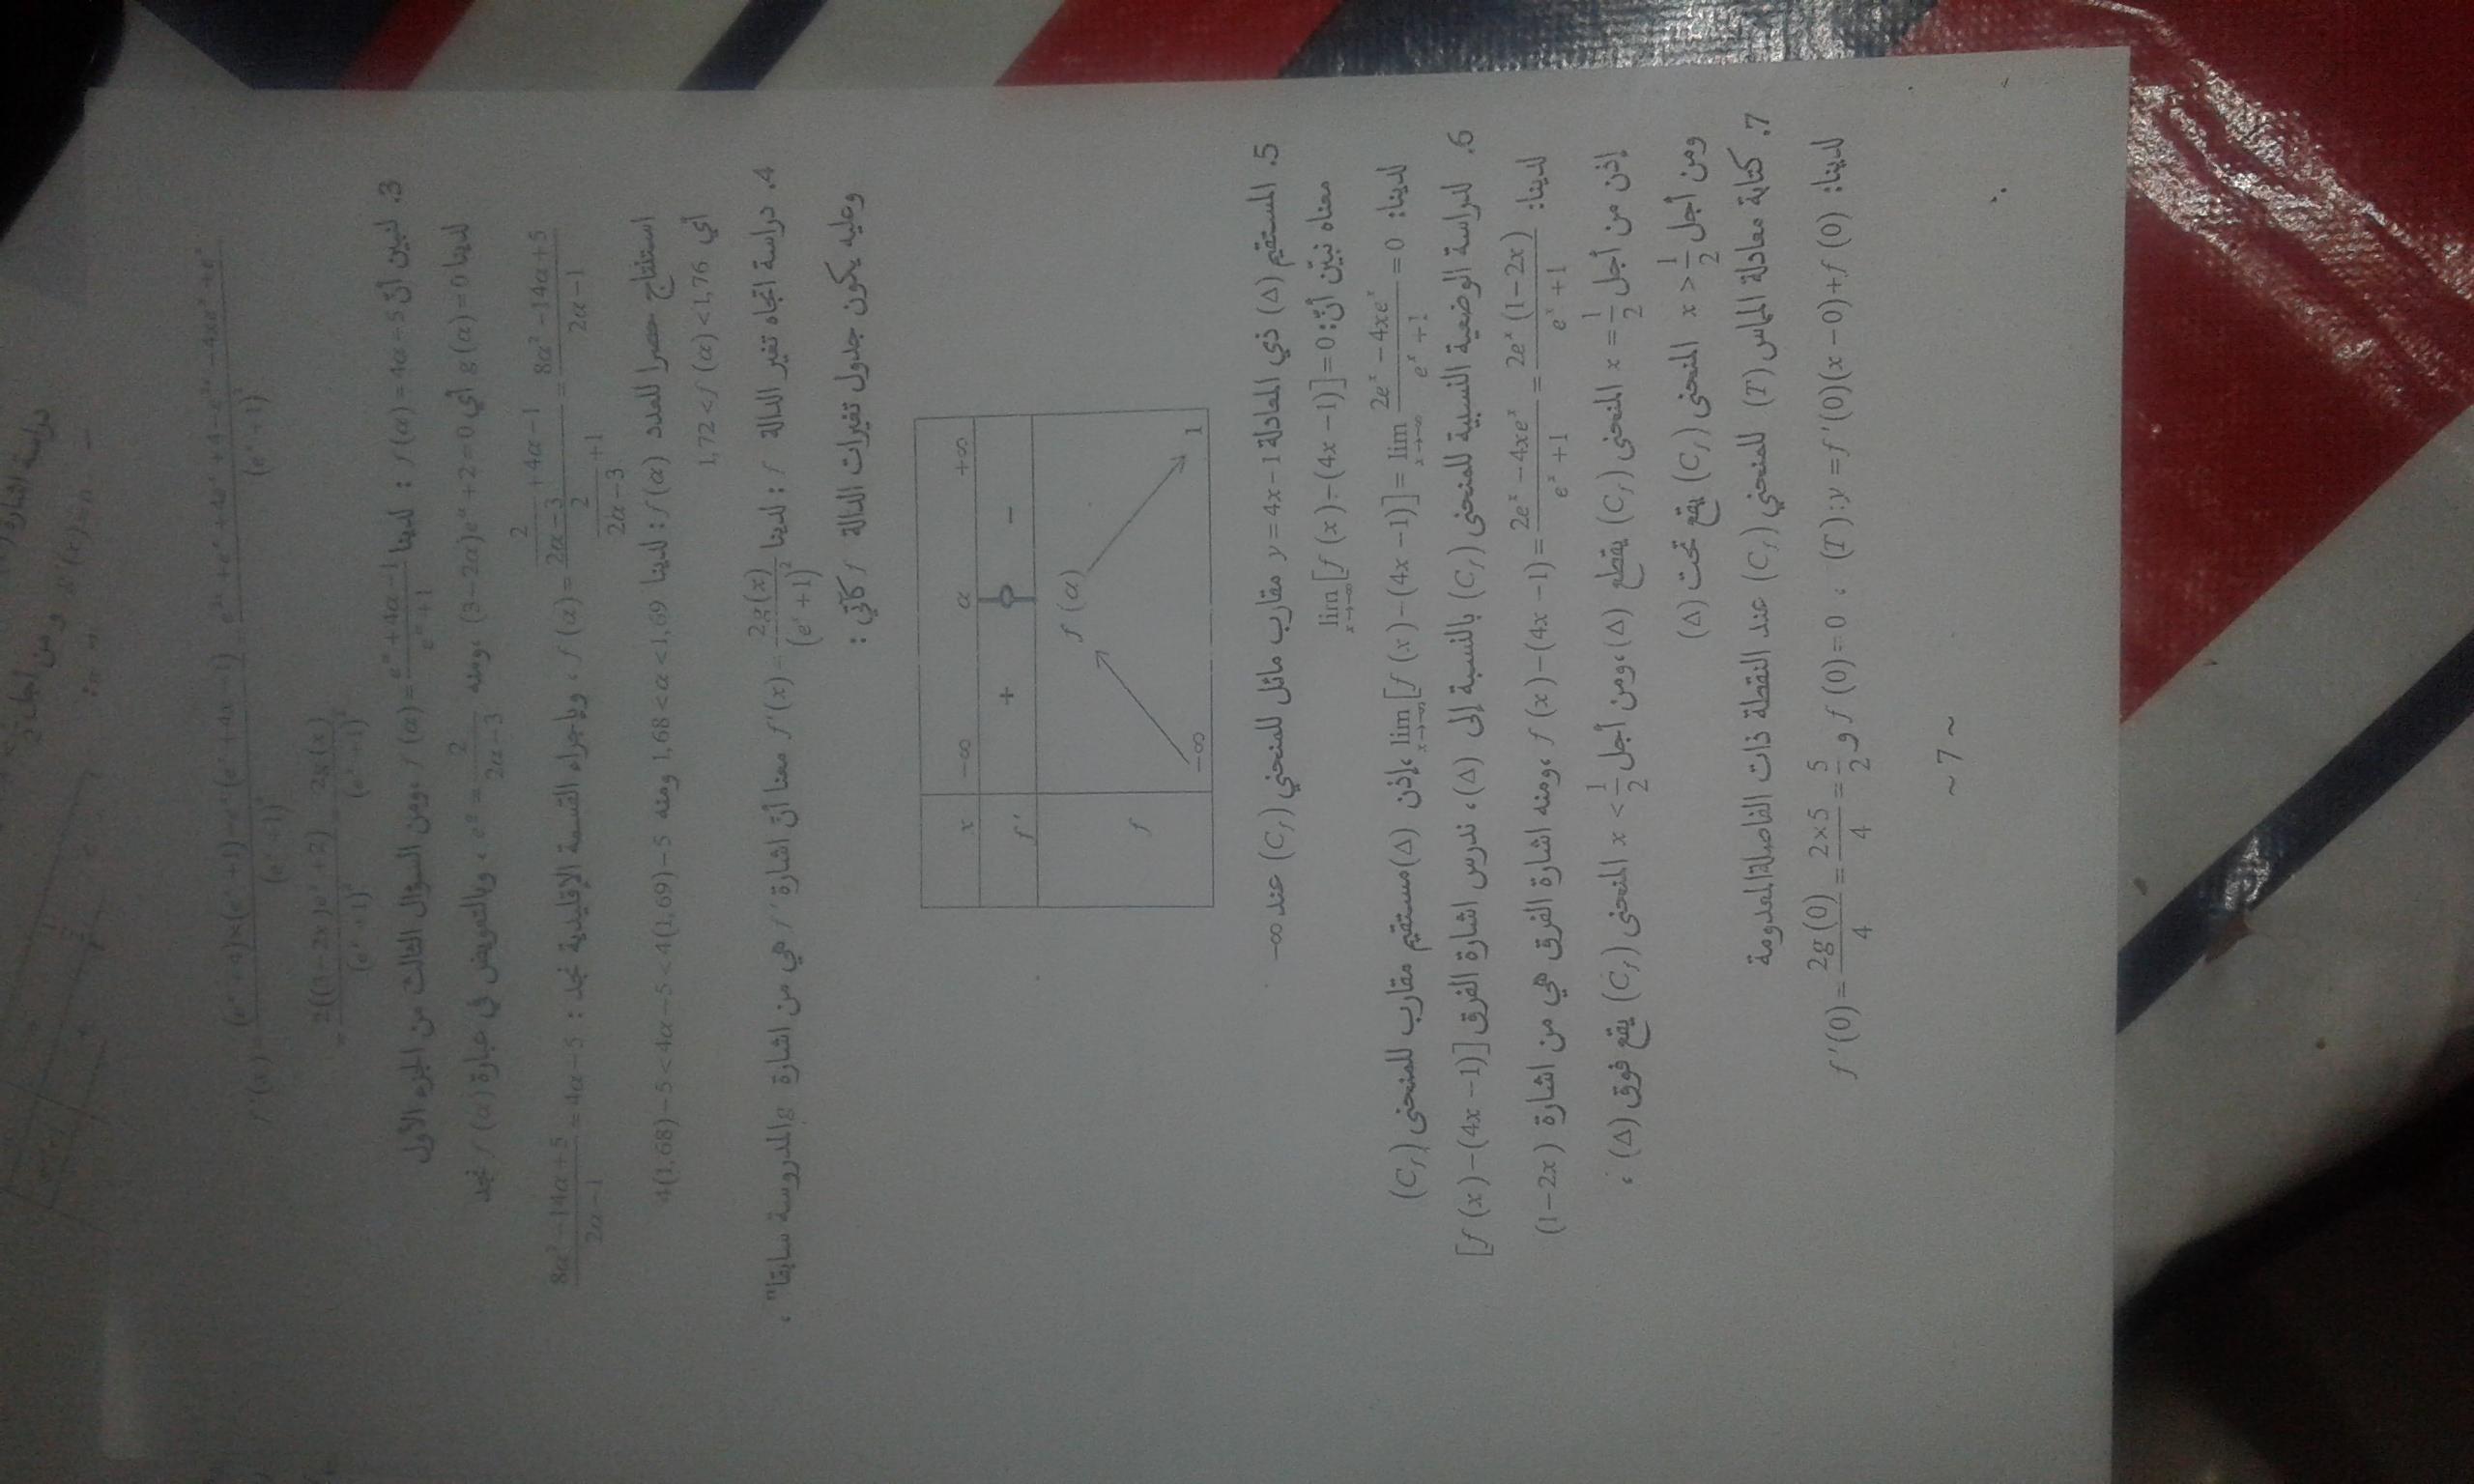 f'(x) = \frac{(e^x+4)×(e^x+1)-e^x(e^x+4x-1)}{(e^x+1)^2} = \frac{e^{2x}+e^x+4e^x+4-e^{2x}-4xe^x+e^x}{(e^x+1)^2}
= \frac{2((3-2x)e^x+2)}{(e^x+1)^2} = \frac{2g(x)}{(e^x+1)^2}
3. لنبين أنّ f(α)=4α-5 : لدينا f(α)=\frac{e^α+4α-1}{e^α+1} ،ومن السؤال الثالث من الجزء الأول
لدينا g(α)=0 أي (3-2α)e^α+2=0 ،ومنه e^α=\frac{2}{2α-3} ، وبالتعويض في عبارة f(α) نجد
f(α)=\frac{\frac{2}{2α-3}+4α-1}{\frac{2}{2α-3}+1}=\frac{8α^2-14α+5}{2α-1} ، وبإجراء القسمة الإقليدية نجد : \frac{8α^2-14α+5}{2α-1}=4α-5
استنتاج حصرا للعدد f(α) : لدينا 1,68<α<1,69 ومنه 4(1,68)-5<4α-5<4(1,69)-5
أي 1,72<f(α)<1,76
4. دراسة اتجاه تغير الدالة f : لدينا f'(x)=\frac{2g(x)}{(e^x+1)^2} معنا أنّ اشارة f' هي من اشارة g المدروسة سابقا" ،
وعليه يكون جدول تغيرات الدالة f كآتي :
x -∞ α +∞
f' + 0 -
f -∞ f(α) 1
5. المستقيم (Δ) ذي المعادلة y=4x-1 مقارب مائل للمنحني (C_f) عند -∞
معناه نبيّن أنّ: \lim_{x→-∞}[f(x)-(4x-1)]=0
لدينا: \lim_{x→-∞}[f(x)-(4x-1)]=\lim_{x→-∞}\frac{2e^x-4xe^x}{e^x+1}=0 ،إذن (Δ) مستقيم مقارب للمنحنى (C_f)
6. لدراسة الوضعية النسبية للمنحنى (C_f) بالنسبة إلى (Δ)، ندرس اشارة الفرق [f(x)-(4x-1)]
لدينا: f(x)-(4x-1)=\frac{2e^x-4xe^x}{e^x+1}=\frac{2e^x(1-2x)}{e^x+1} ،ومنه اشارة الفرق هي من اشارة (1-2x)
إذن من أجل x=\frac{1}{2} المنحنى (C_f) يقطع (Δ) ،ومن أجل x<\frac{1}{2} المنحنى (C_f) يقع فوق (Δ) ،
ومن أجل x>\frac{1}{2} المنحنى (C_f) يقع تحت (Δ)
7. كتابة معادلة المماس (T) للمنحني (C_f) عند النقطة ذات الفاصلة المعدومة
لدينا: (T):y=f'(0)(x-0)+f(0) ، f(0)=0 و f'(0)=\frac{2g(0)}{4}=\frac{2×5}{4}=\frac{5}{2}
~ 7 ~